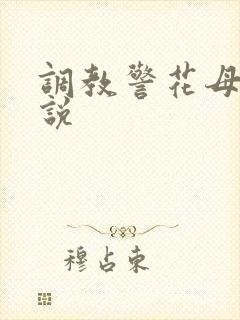 調教警花母
說
穆占東